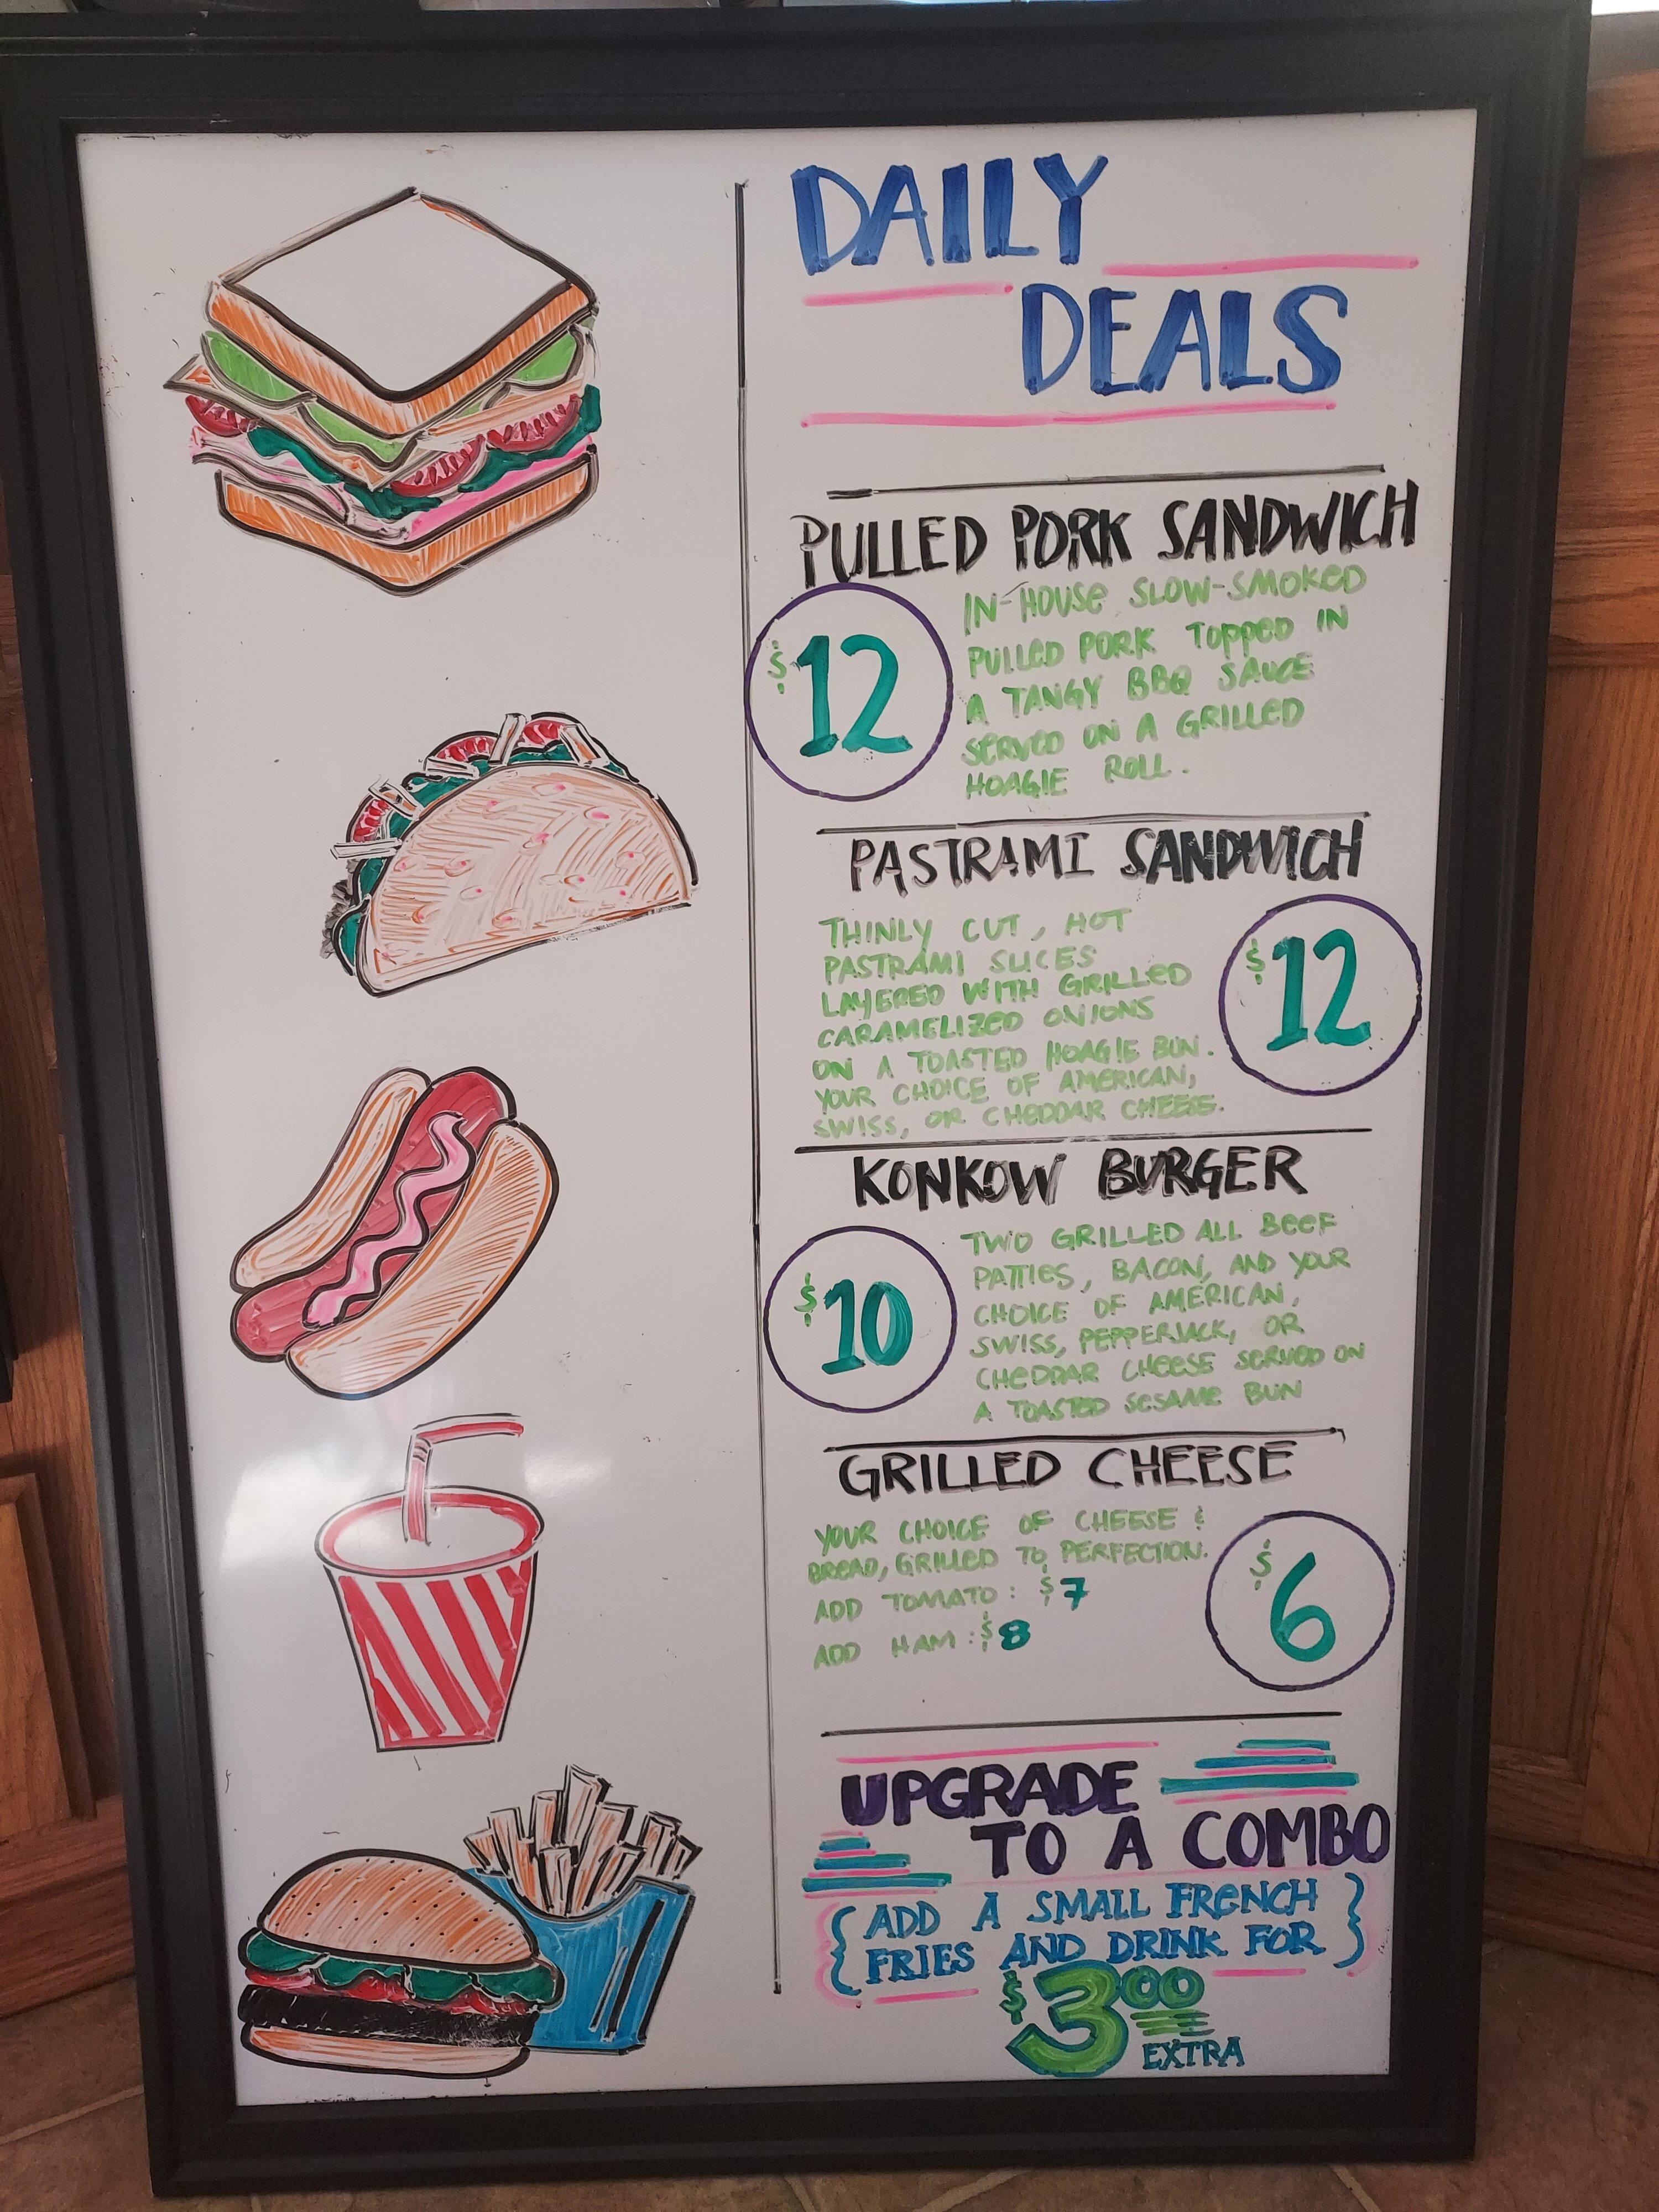 DAILY
DEALS
PULLED PORK SANDWICH
$12
IN-HOUSE SLOW-SMOKED
PULLED PORK TOPPED IN
A TANGY BBQ SAUCE
SERVED ON A GRILLED
HOAGIE ROLL.
PASTRAMI SANDWICH
THINLY CUT, HOT
PASTRAMI SLICES
LAYERED WITH GRILLED
CARAMELIZED ONIONS
ON A TOASTED HOAGIE BUN.
YOUR CHOICE OF AMERICAN,
SWISS, OR CHEDDAR CHEESE.
$12
KONKOW BURGER
$10
TWO GRILLED ALL BEEF
PATTIES, BACON, AND YOUR
CHOICE OF AMERICAN,
SWISS, PEPPERJACK, OR
CHEDDAR CHEESE SERVED ON
A TOASTED SESAME BUN
GRILLED CHEESE
YOUR CHOICE OF CHEESE &
BREAD, GRILLED TO PERFECTION.
ADD TOMATO: $7
ADD HAM: $8
$6
UPGRADE
TO A COMBO
{ADD A SMALL FRENCH
FRIES AND DRINK FOR}
$3.00
EXTRA